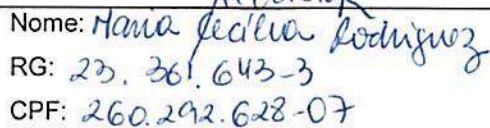 Nome: Maria Cecília Rodriguez
RG: 23.361.643-3
CPF: 260.292.628-07